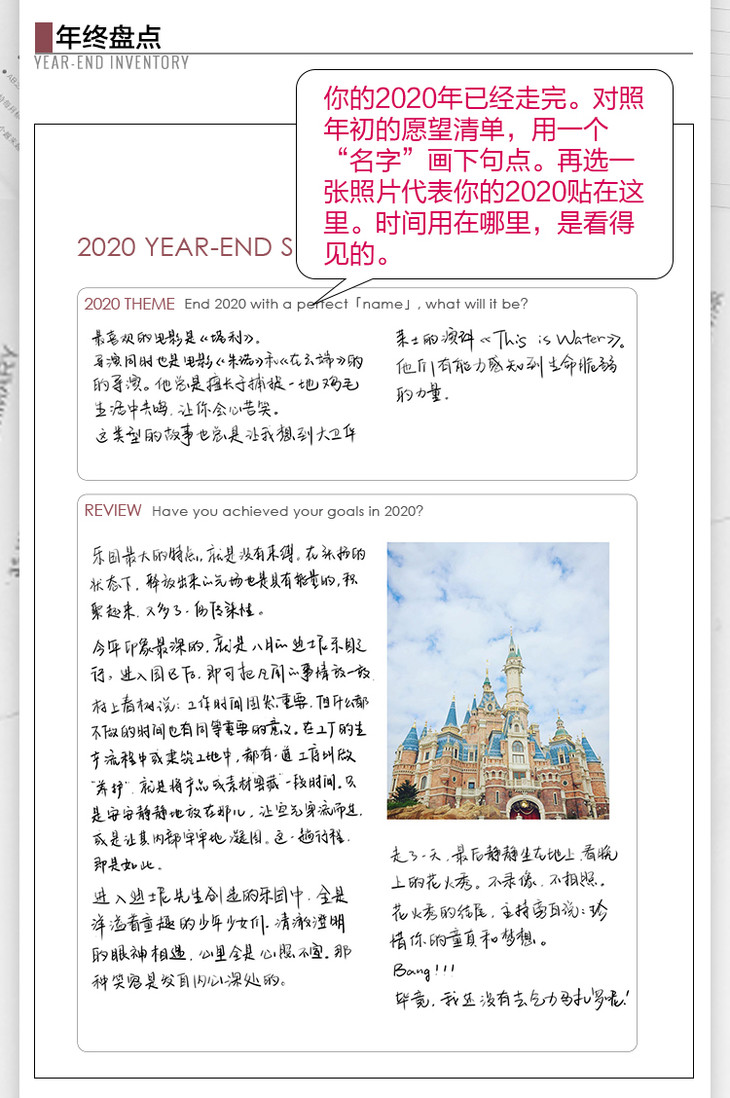 年终盘点
YEAR-END INVENTORY
你的2020年已经走完。对照
年初的愿望清单，用一个
“名字”画下句点。再选一
张照片代表你的2020贴在这
里。时间用在哪里，是看得
见的。
2020 YEAR-END S
2020 THEME End 2020 with a perfect「name」, what will it be?
最喜欢的电影是《塔利》。
导演同时也是电影《朱诺》和《在云端》的
的导演。他总是擅长于捕捉一地鸡毛
生活中共鸣，让你会心苦笑。
这类型的故事也总是让我想到大卫华
莱士的演讲《This is Water》。
他们有能力感知到生命脆弱
的力量.
REVIEW Have you achieved your goals in 2020?
乐园最大的特点，就是没有束缚。在
状态下，释放出来的气场也是具有能量的，积
聚起来，又多了一份传染性。
今年印象最深的，就是八月的迪士尼乐园之
行，进入园区后，即可把凡间的事情放一放
村上春树说：工作时间固然重要，但什么都
不做的时间也有同等重要的意义。在工厂的生
产流程中或建筑工地中，都有一道工序叫做
“养护”，就是将产品或素材密藏一段时间。只
是安安静静地放在那儿，让空气穿流而过，
或是让其内部牢牢地凝固。这一趟行程，
即是如此。
进入迪士尼先生创造的乐园中，全是
洋溢着童趣的少年少女们，清澈澄明
的眼神相遇，心里全是心照不宣。那
种笑容是发自内心深处的。
走了一天，最后静静坐在地上，看晚
上的花火秀。不录像，不拍照。
花火秀的结尾，主持旁白说：珍
惜你的童真和梦想。
Bang!!!
毕竟，我还没有去乞力马扎罗呢！